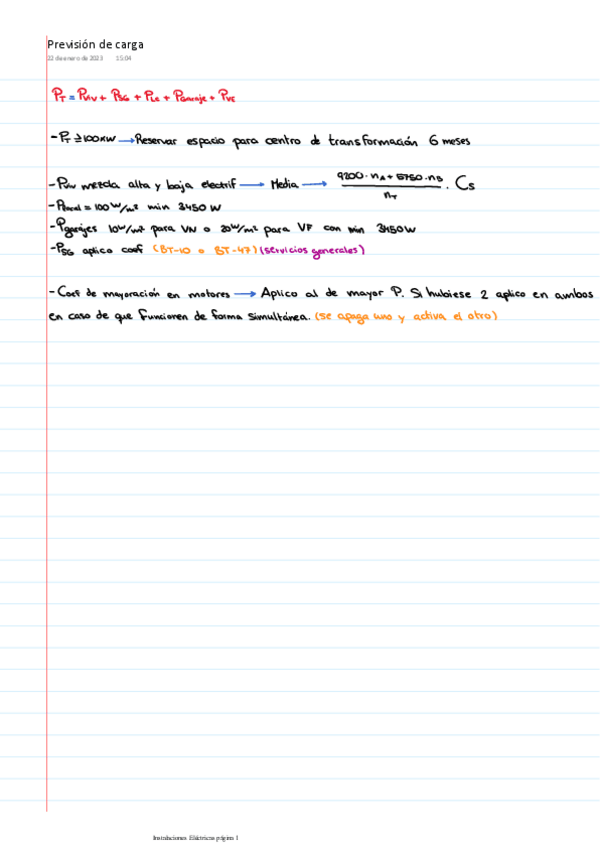 Previsión de carga
22 de enero de 2023 15:04
PT = Pviv + PSG + PLC + PGaraje + PVE
- PT ≥ 100kW → Reservar espacio para centro de transformación 6 meses
- Pviv mezcla alta y baja electrif → Media → (9200 · nA + 5750 · nB) / nT · Cs
- Plocal = 100 W/m² min 3450 W
- Pgarajes 10W/m² para VN o 20W/m² para VF con min 3450W
- PSG aplico coef (BT-10 o BT-47) (servicios generales)
- Coef de mayoración en motores → Aplico al de mayor P. Si hubiese 2 aplico en ambos
en caso de que funcionen de forma simultánea. (se apaga uno y activa el otro)
Instalaciones Eléctricas página 1